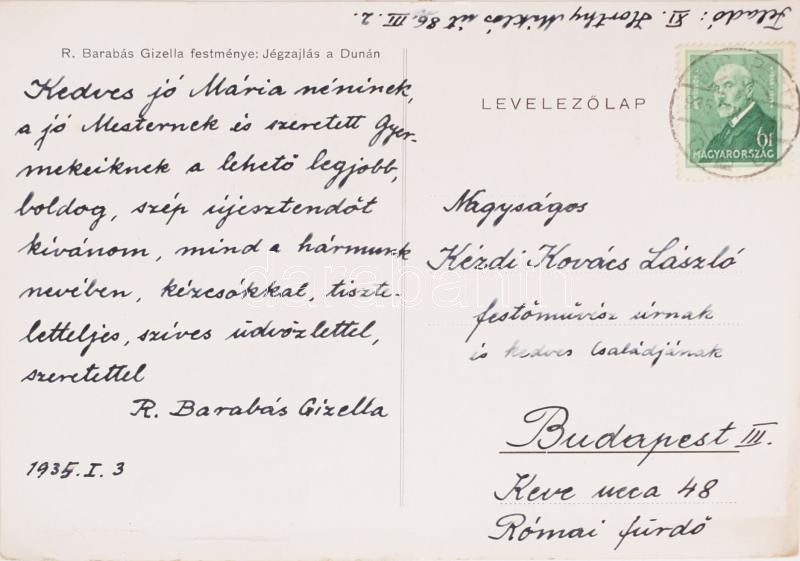 Feladó: XI. Horthy Miklós út 86. III. 2.
R. Barabás Gizella festménye: Jégzajlás a Dunán
Kedves jó Mária néninek,
a jó Mesternek és szeretett Gyer-
mekeiknek a lehető legjobb,
boldog, szép újesztendőt
kívánom, mind a hármunk
nevében, kézcsókkal, tiszte-
letteljes, szíves üdvözlettel,
szeretettel
R. Barabás Gizella
1935. I. 3
LEVELEZŐLAP
6f
MAGYARORSZÁG
Nagyságos
Kézdi Kovács László
festőművész úrnak
és kedves Családjának
Budapest III.
Keve ucca 48
Római fürdő
darabanth